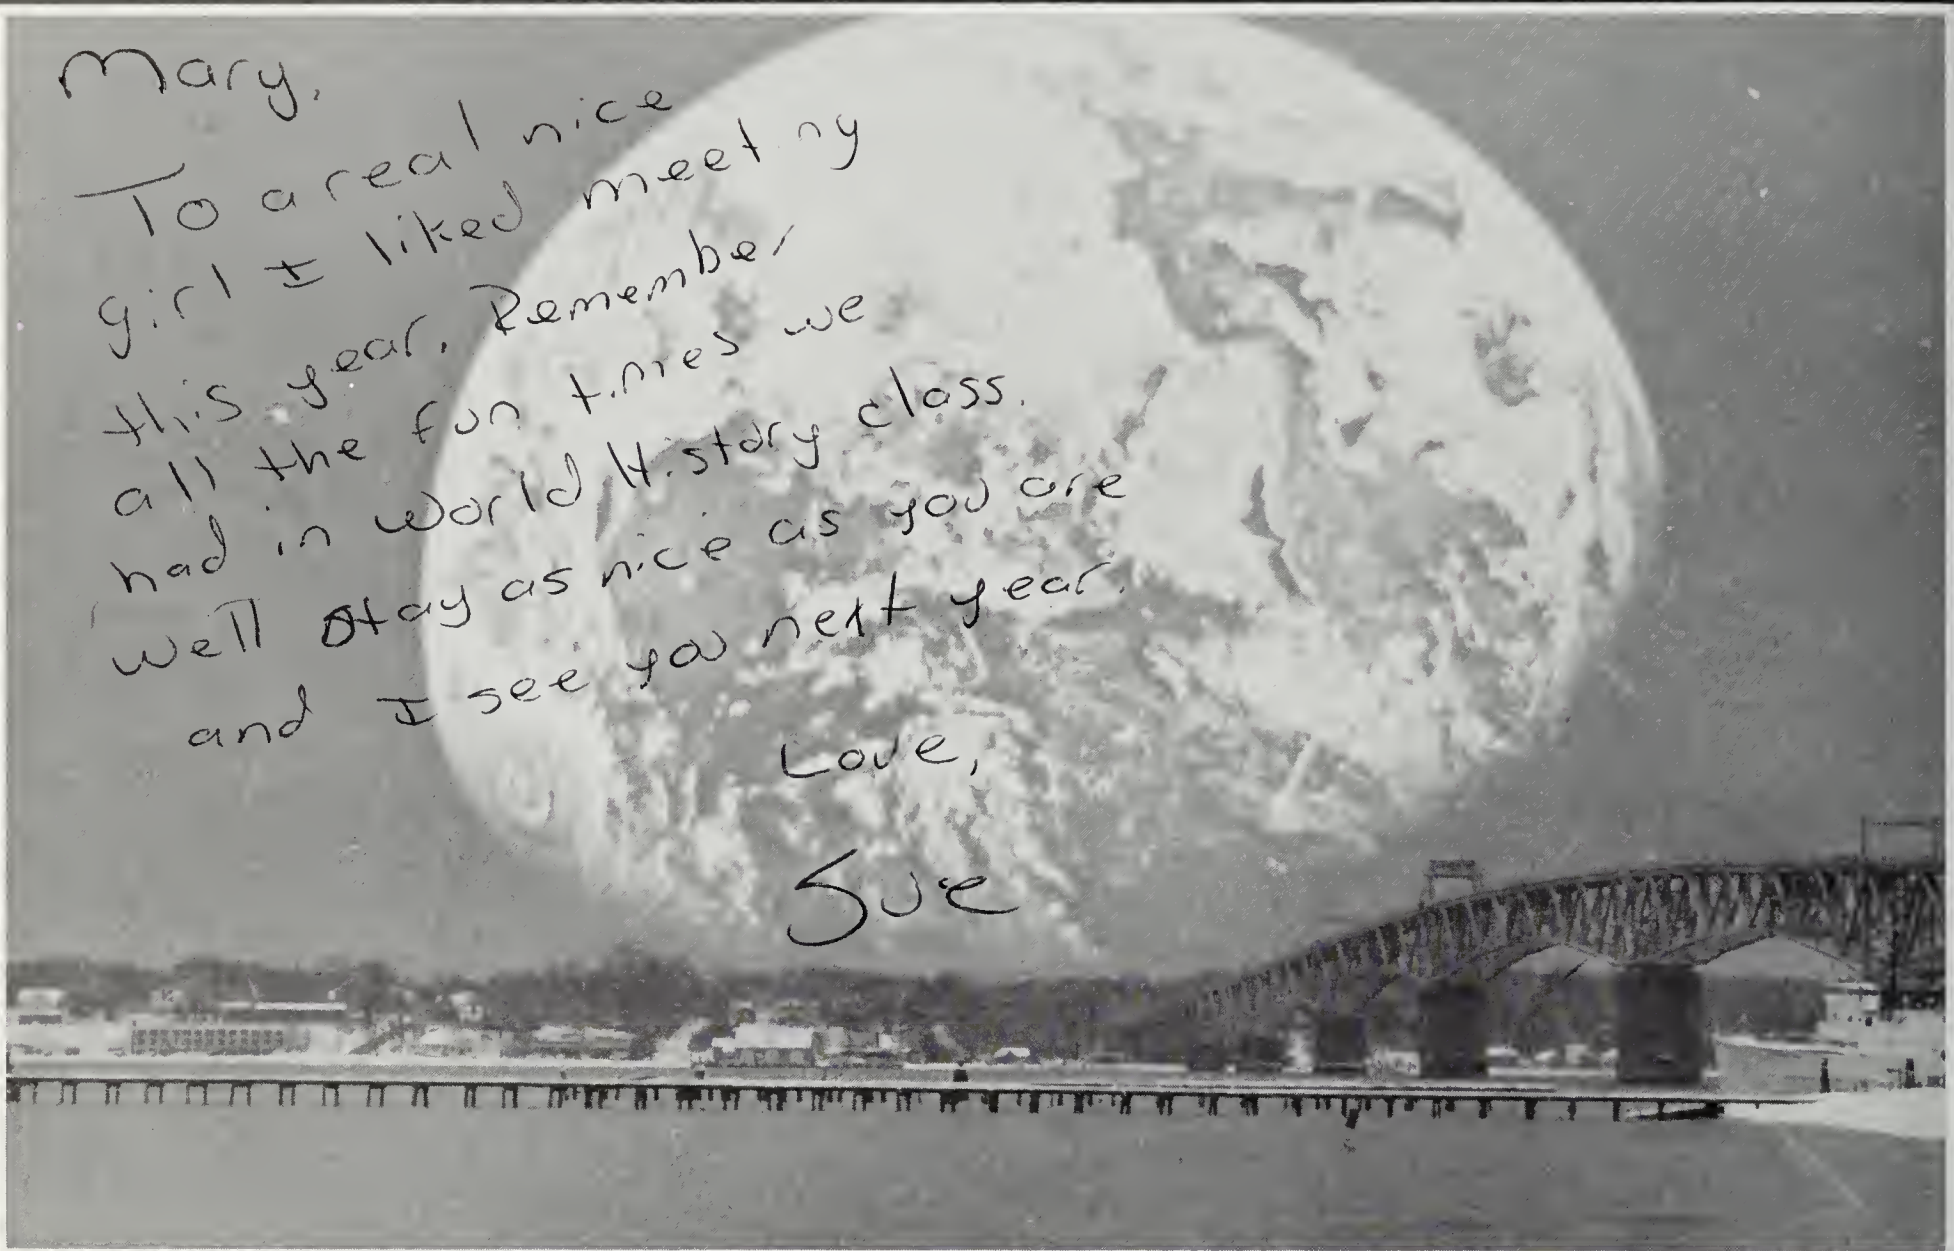 Mary,
To a real nice
girl I liked meeting
this year. Remember
all the fun times we
had in World History class.
well stay as nice as you are
and I see you next year.
Love,
Sue